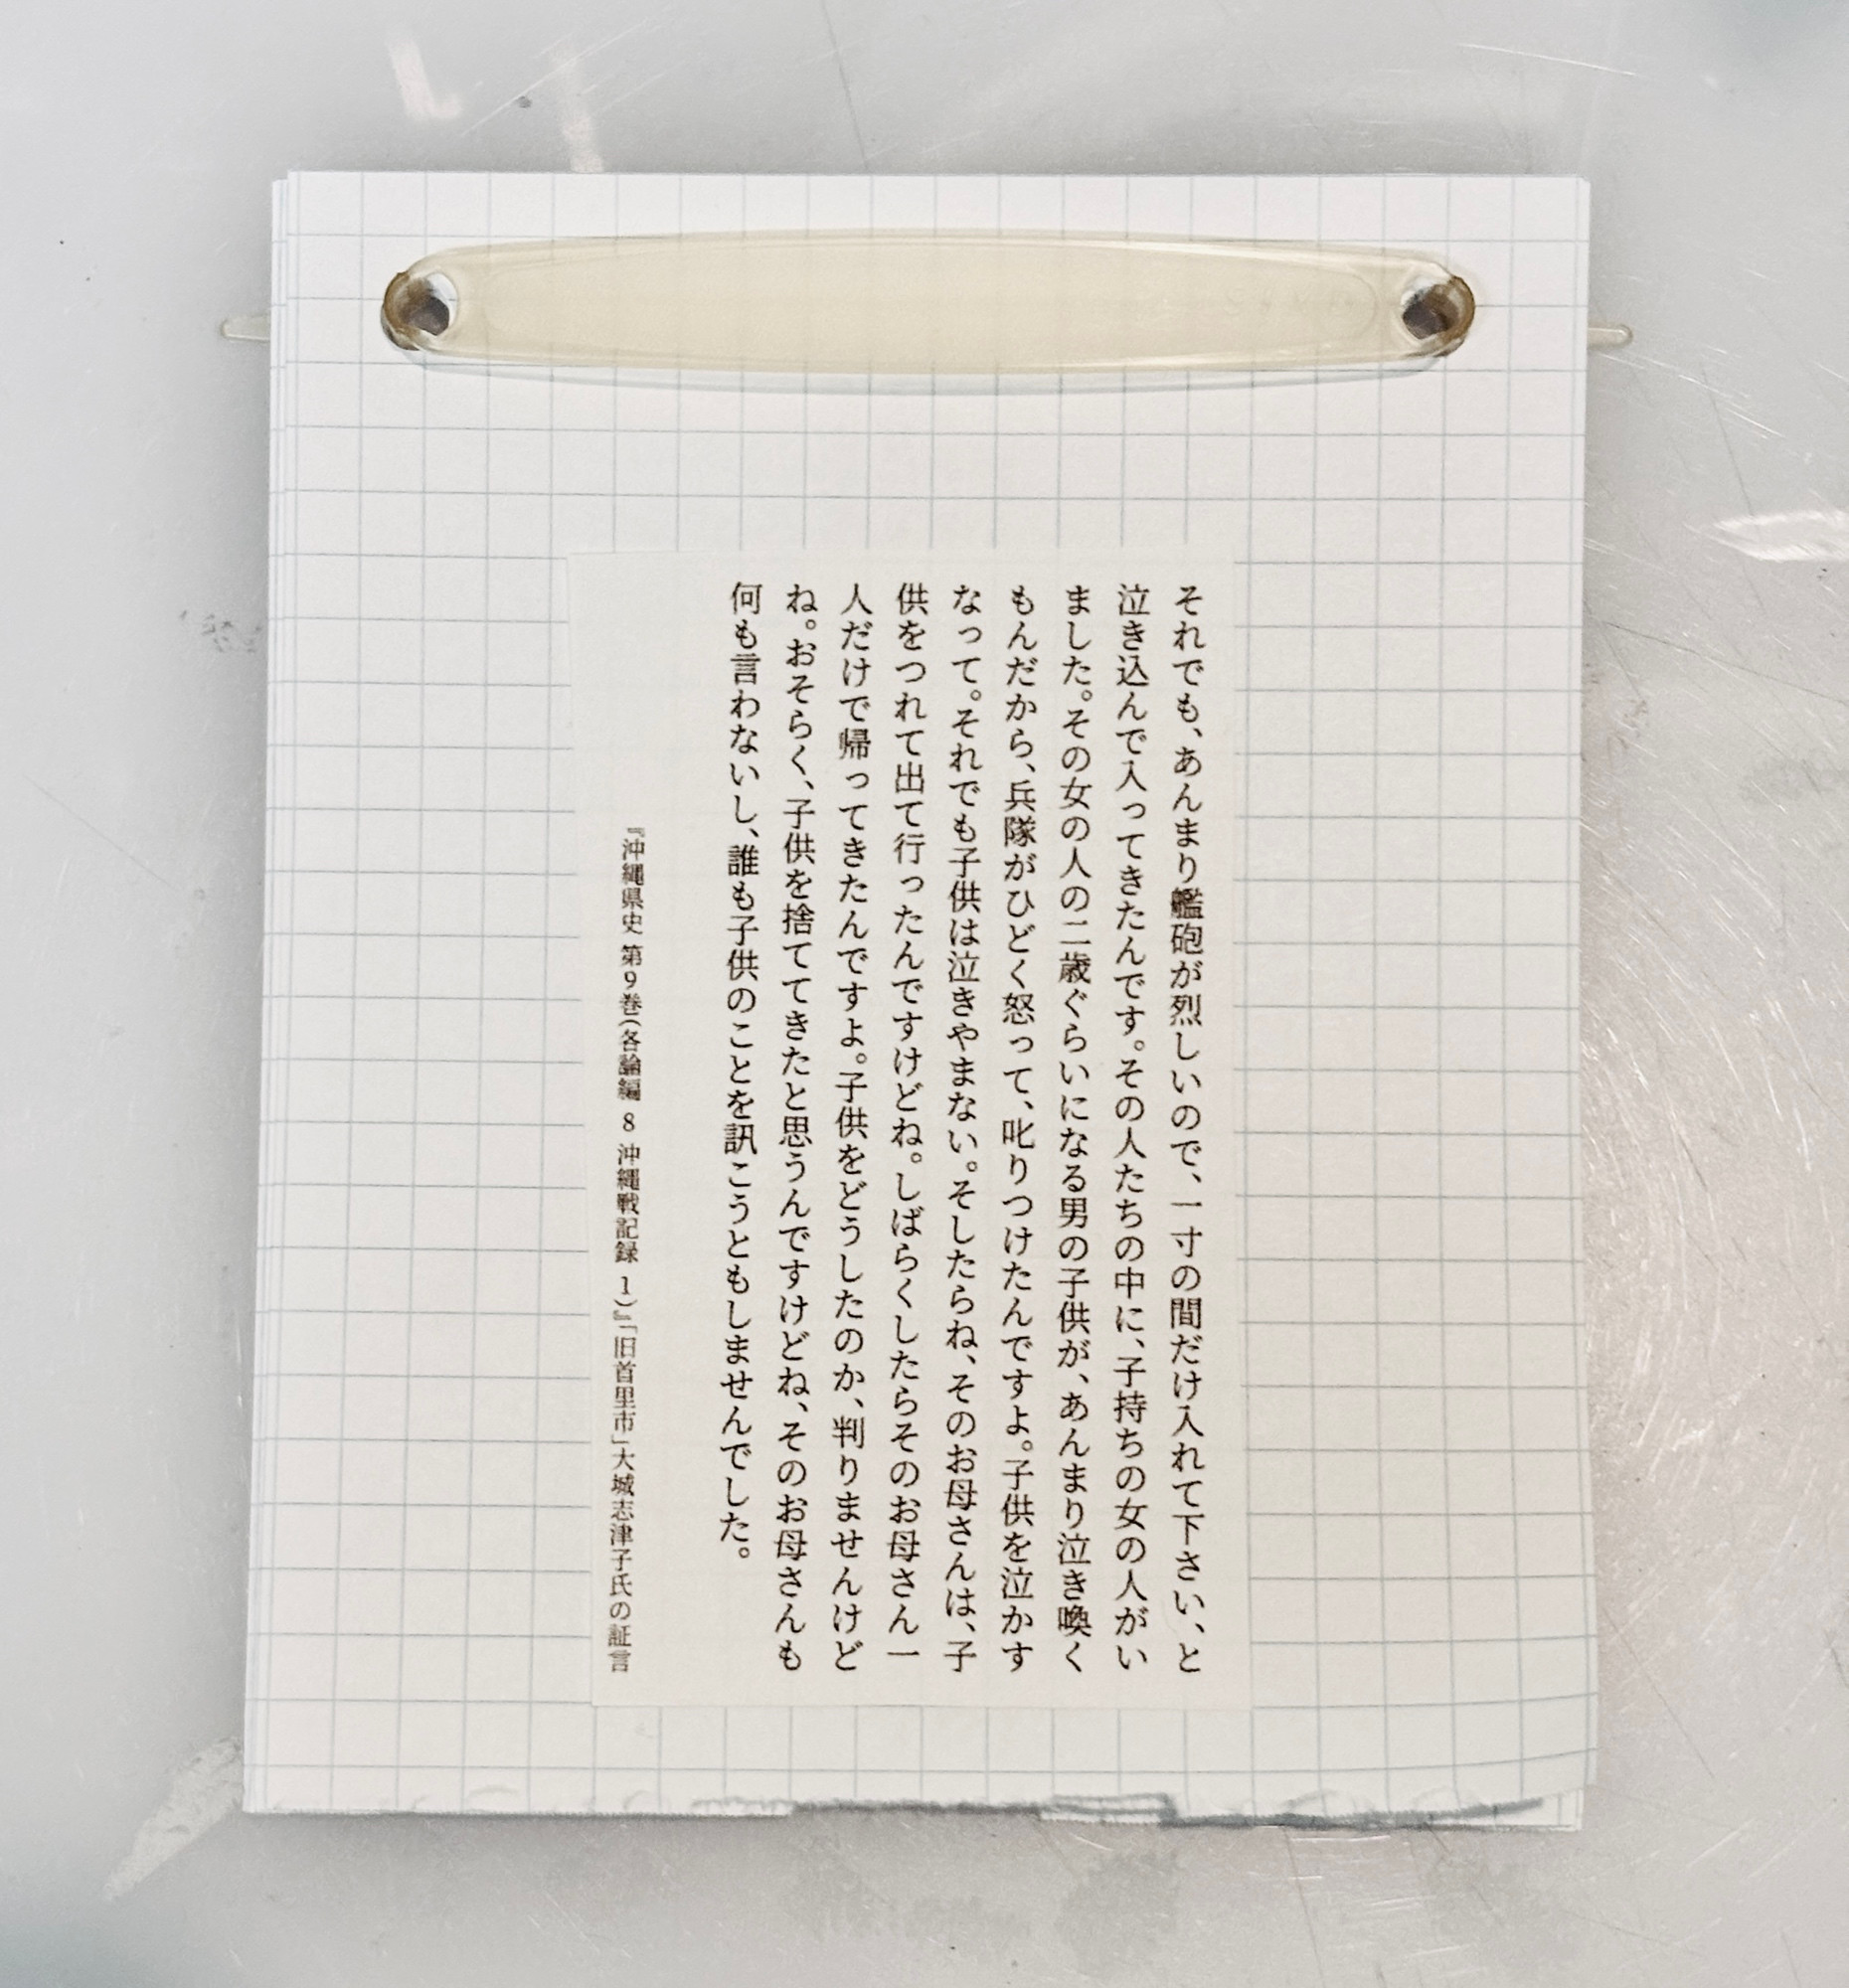 それでも、あんまり艦砲が烈しいので、一寸の間だけ入れて下さい、と
泣き込んで入ってきたんです。その人たちの中に、子持ちの女の人がい
ました。その女の人の二歳ぐらいになる男の子供が、あんまり泣き喚く
もんだから、兵隊がひどく怒って、叱りつけたんですよ。子供を泣かす
なって。それでも子供は泣きやまない。そしたらね、そのお母さんは、子
供をつれて出て行ったんですけどね。しばらくしたらそのお母さん一
人だけで帰ってきたんですよ。子供をどうしたのか、判りませんけど
ね。おそらく、子供を捨ててきたと思うんですけどね、そのお母さんも
何も言わないし、誰も子供のことを訊こうともしませんでした。
『沖縄県史 第9巻(各論編 8 沖縄戦記録 1)』「旧首里市」大城志津子氏の証言